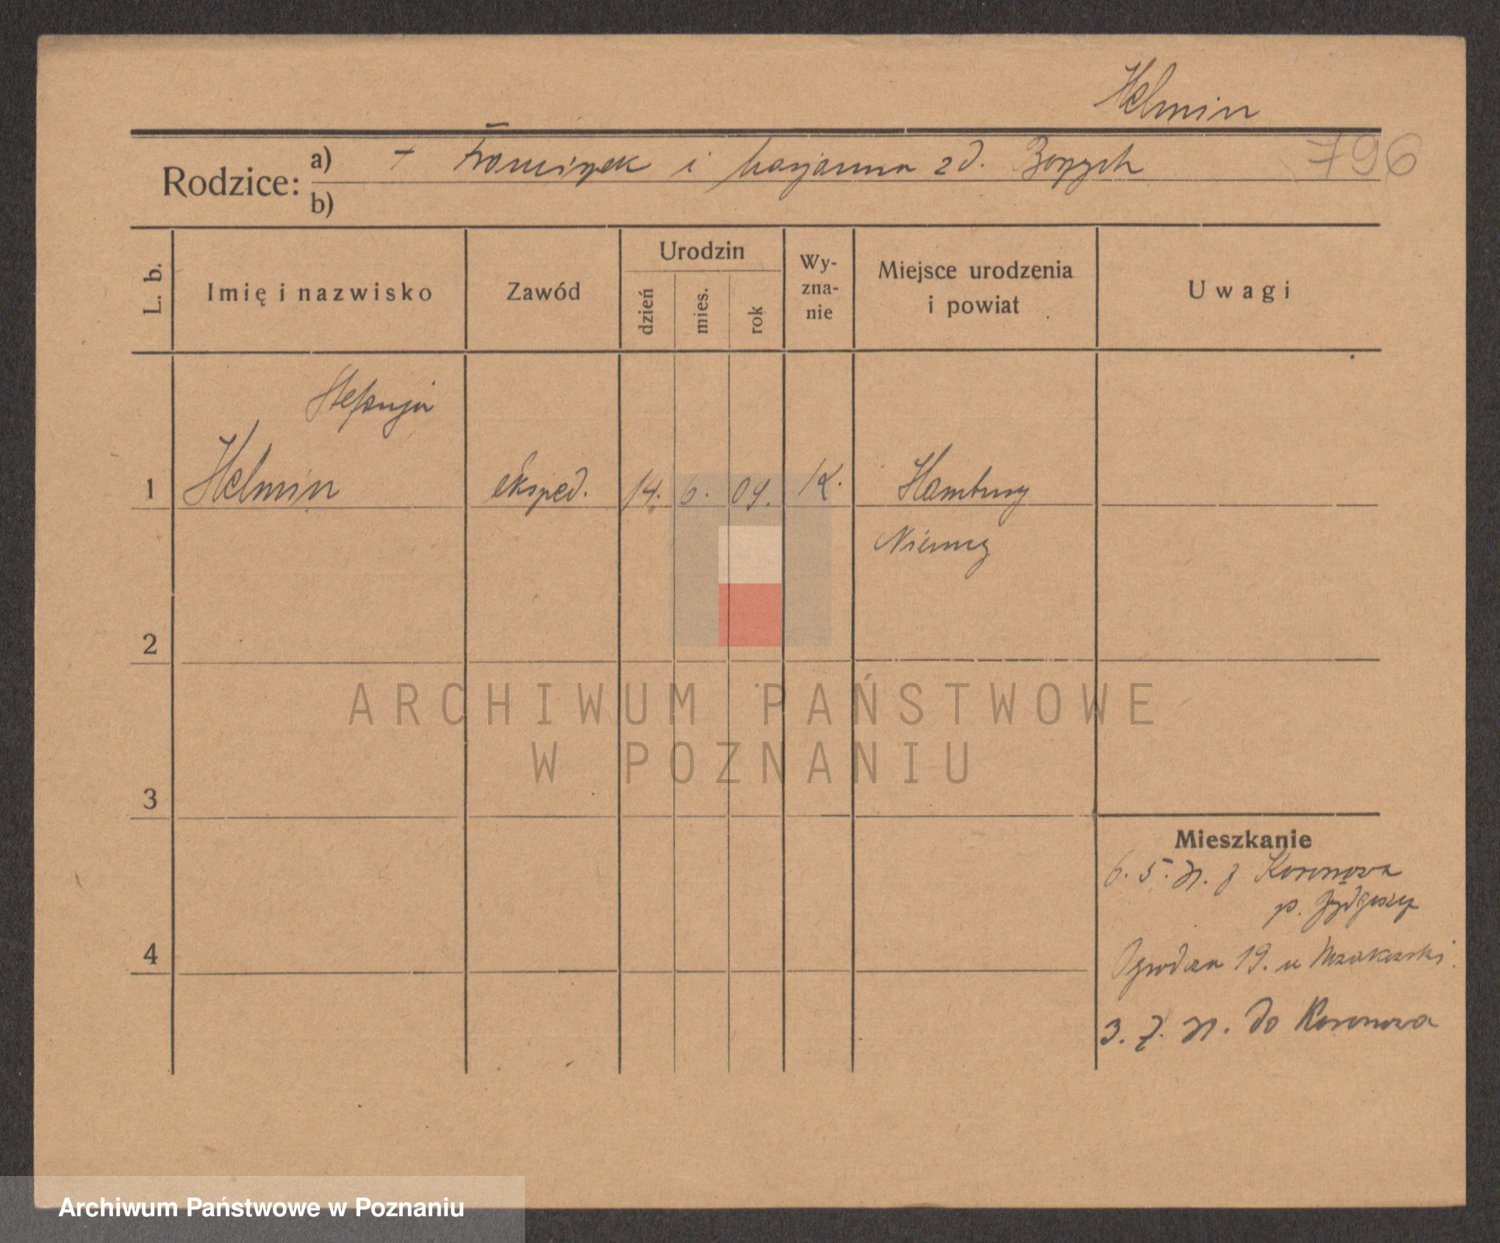 Helmin
Rodzice: a) + Franciszek i Marjanna zd.
796
b)
L. b.
Imię i nazwisko
Zawód
Urodzin
dzień
mies.
rok
Wy-
zna-
nie
Miejsce urodzenia
i powiat
Uwagi
Stefanja
1 Helmin eksped. 14. 6. 09. K. Hamburg
Niemcy
2
ARCHIWUM PAŃSTWOWE
W POZNANIU
3
Mieszkanie
6. 5. z Koronowa
p. Bydgoszcz
4
Ogrodowa 19. u
3. 7. do Koronowa
Archiwum Państwowe w Poznaniu